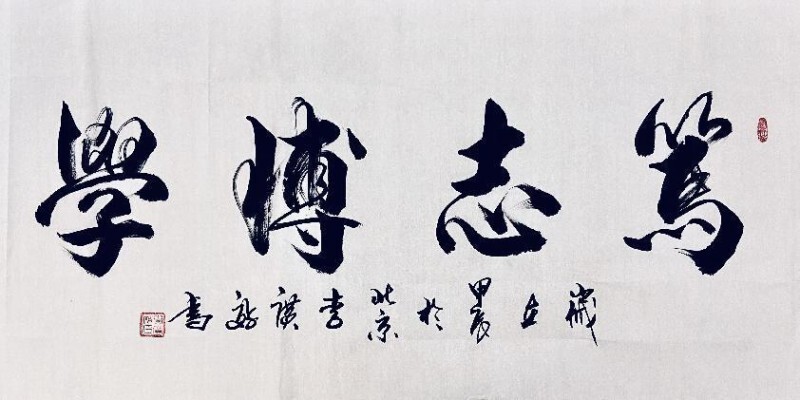 篤志博學
歲在甲辰於北京李書